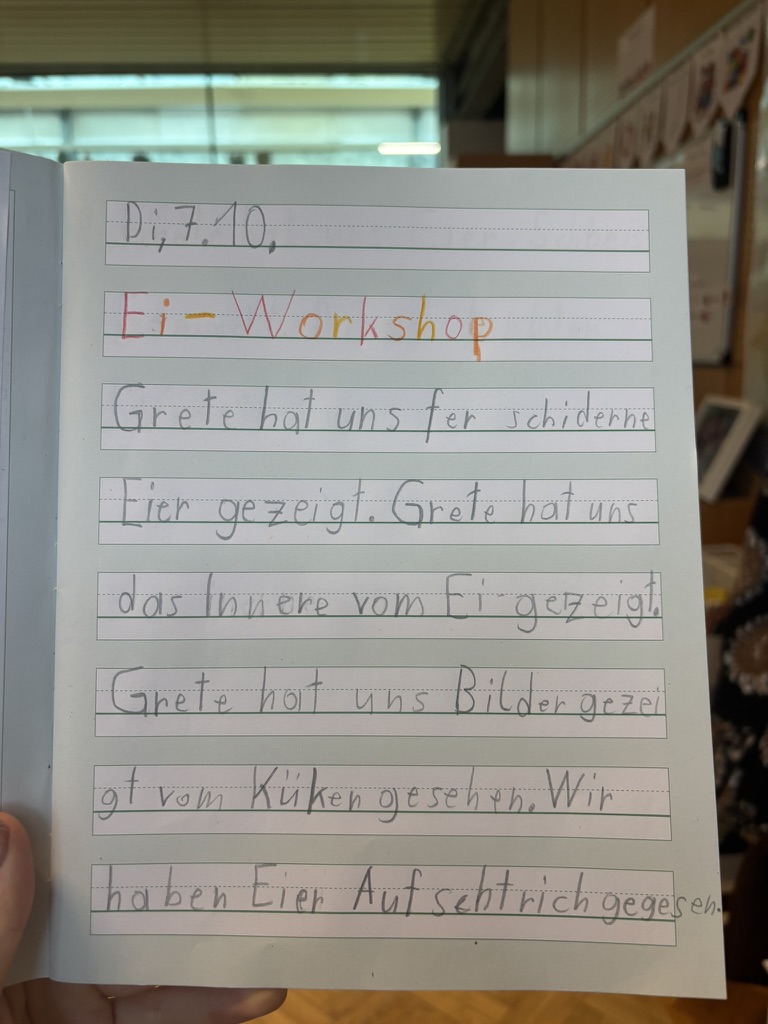 Di, 7.10.
Ei-Workshop
Grete hat uns fer schiderne
Eier gezeigt. Grete hat uns
das Innere vom Ei gezeigt.
Grete hat uns Bilder gezei
gt vom Küken gesehen. Wir
haben Eier Aufschtrich gegesen.